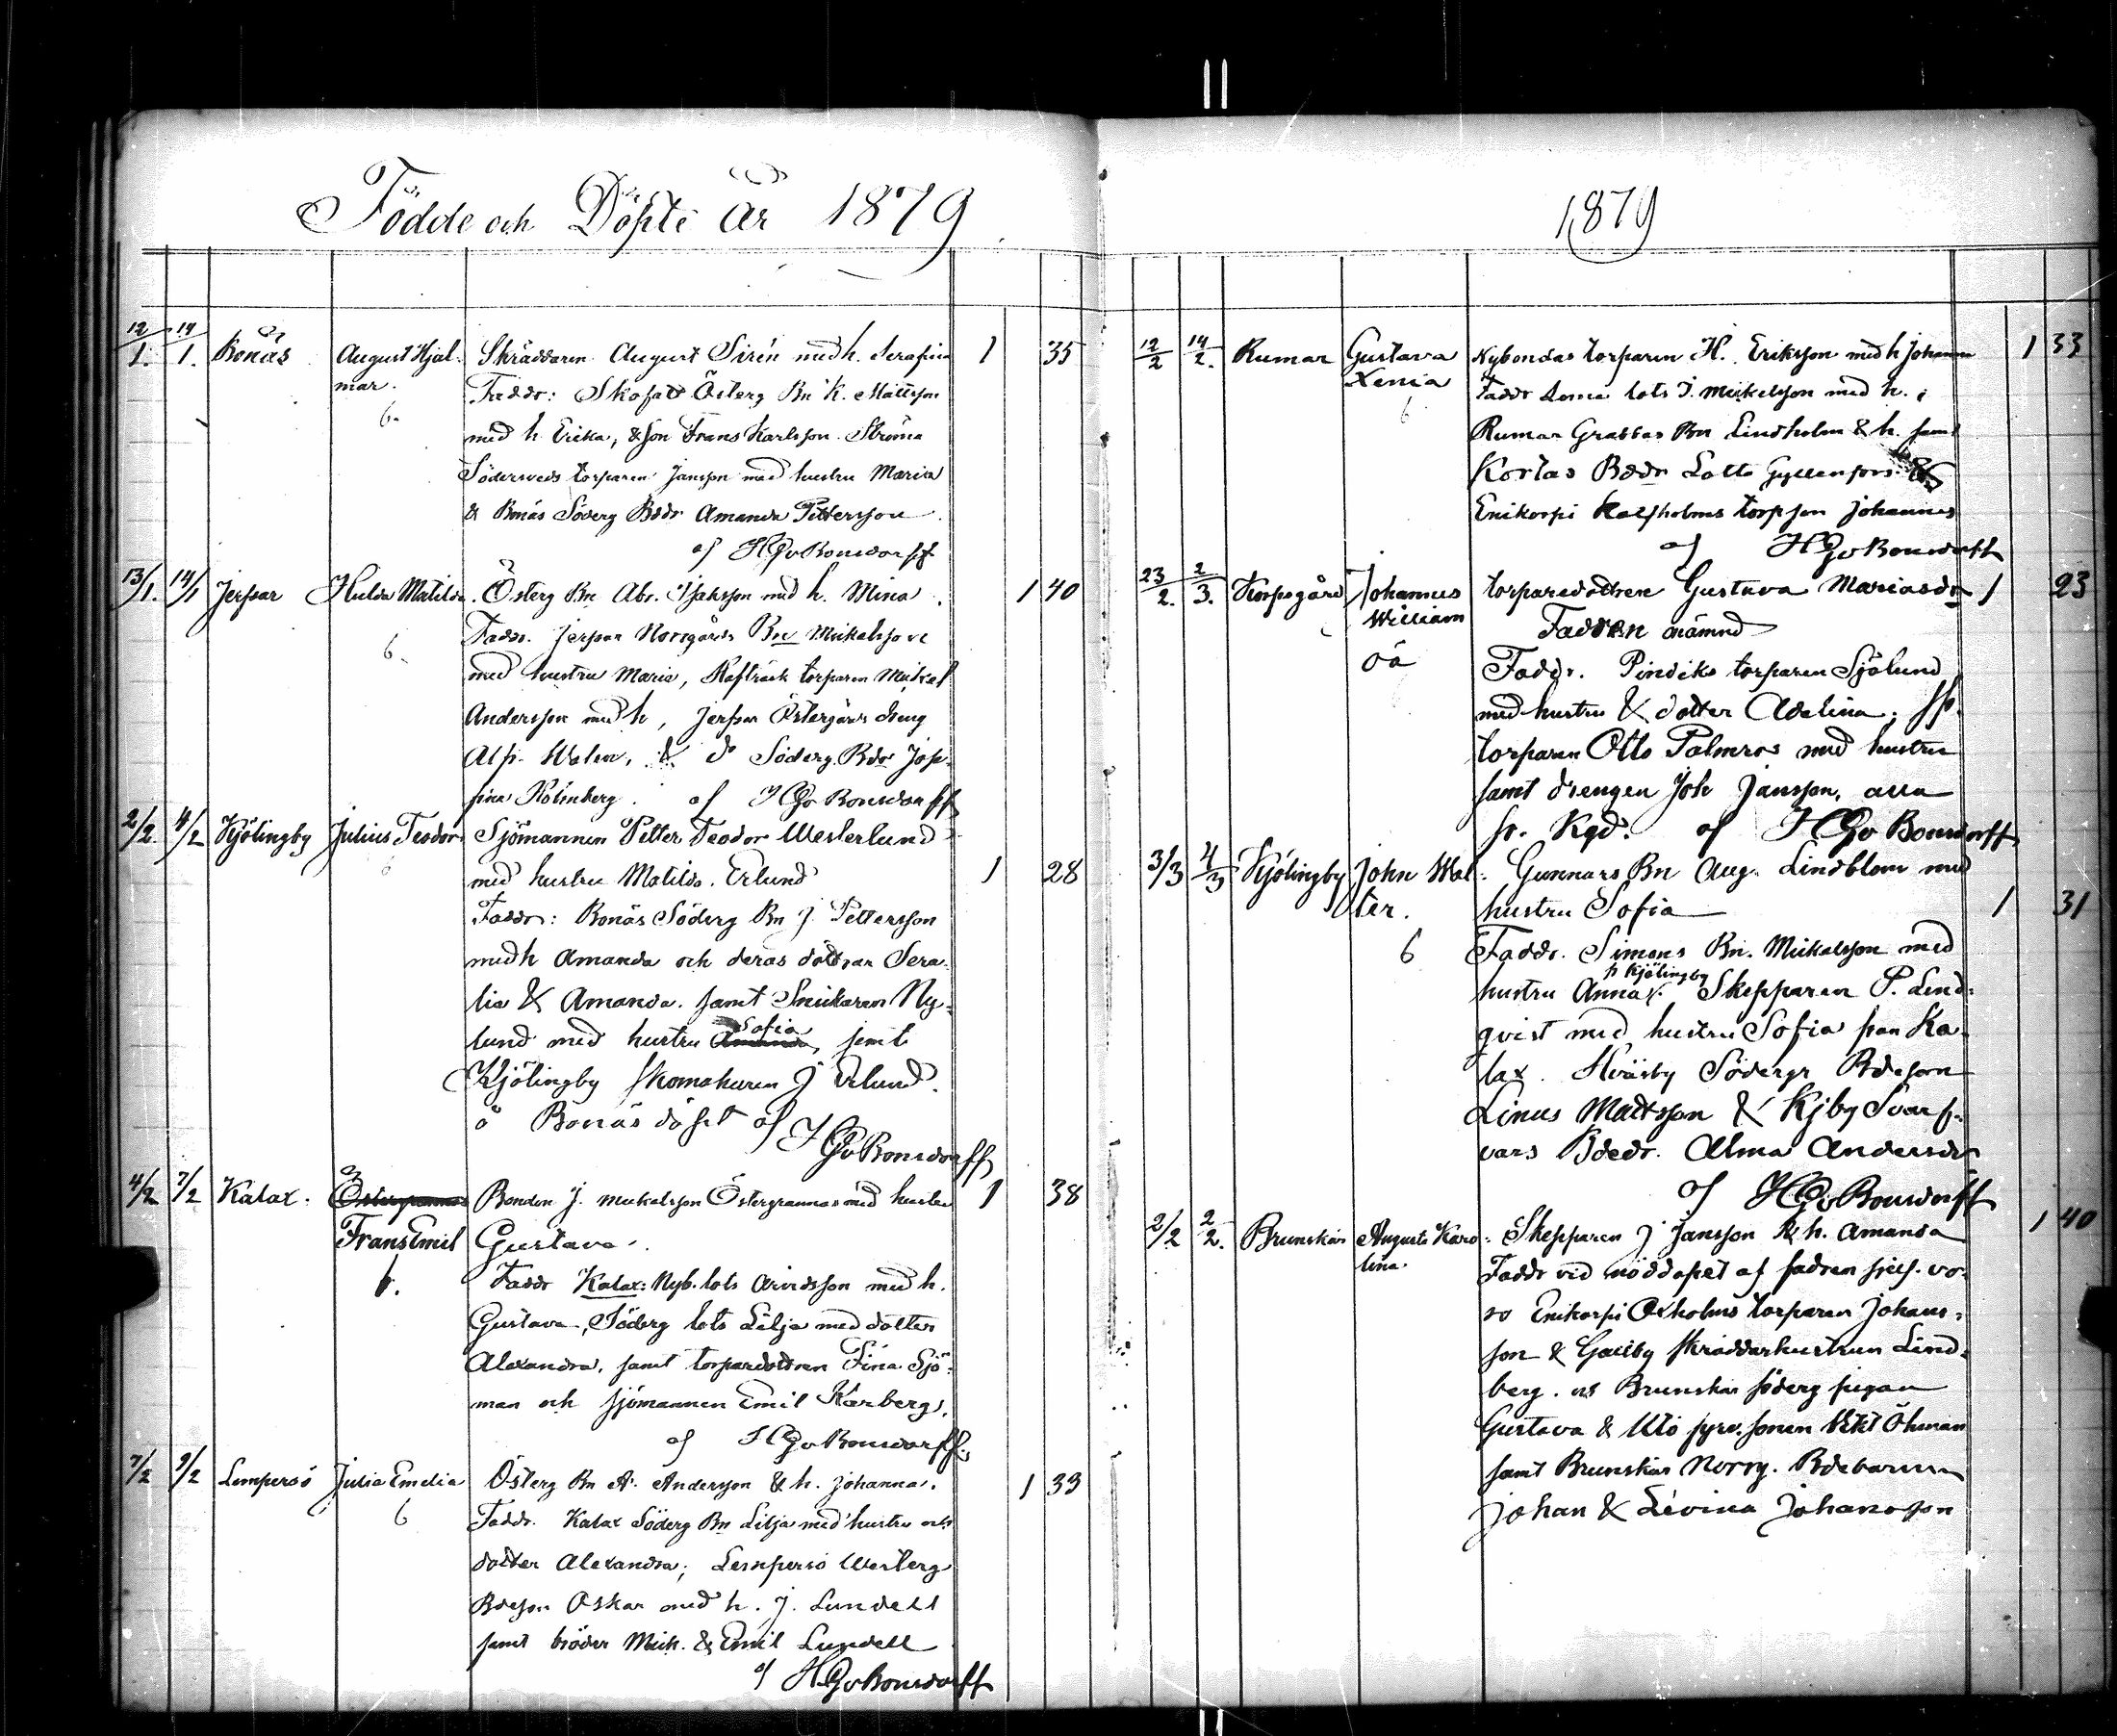 Födde och Döpte år 1879
12/1. 14/1. Bonäs August Hjal- Skräddaren August Sirén med h. Serafina 1 35
mar. Faddr: Skofatt Österg Bn K. Mattsson
6. med h. Erika, & Son Frans Karlsson Ströma
Södersveds torparen Jansson med hustru Maria
& Bonäs Söderg Bddr Amanda Pettersson
af HGvBonsdorff
13/1. 14/1 Jerpar Hulda Matilda. Österg Bn Abr. Isaksson med h. Mina. 1 40
Faddr. Jerpar Norrgårds Bn Mickelsson
6. med hustru Maria, torparen Mickel
Andersson med h, Jerpar Östergårds dreng
Alfr. & do Söderg. Bdr Jose-
fina Holmberg. af HGvBonsdorff
2/2. 4/2 Kjölingby Julius Teodor Sjömannen Petter Teodor Westerlund
6 med hustru Matilda Erlund 1 28
Faddr: Bonäs Söderg Bn J. Pettersson
med h Amanda och deras döttrar Sera-
lia & Amanda. samt Snickaren Ny-
lund med hustru Amanda Sofia, samt
Kjölingby skomakaren J Erlund.
å Bonäs döpt af
HGvBonsdorff
4/2 7/2 Kalax. Östergrannas Bonden J. Mickelsson Östergrannas med hustru 1 38
Frans Emil Gustava.
6. Faddr Kalax: Nyb. lots Arvidsson med h.
Gustava, Söderg lots Lilja med dotter
Alexandra, samt torparedottren Fina Sjö-
man och sjömannen Emil Karberg.
af HGvBonsdorff.
7/2 9/2 Lempersö Julia Emelia Österg Bn A. Andersson & h. Johanna. 1 39
6 Faddr. Kalax Söderg Bn Lilja med hustru och
dotter Alexandra; Lempersö Westerg
Bdeson Oskar med h. J. Lundell
samt bröder Mich. & Emil Lundell
af HGvBonsdorff
1879
12/2 14/2. Rumar Gustava Nybondas torparen H. Eriksson med h Johanna 1 33
Xenia Faddr lots J. Mickelsson med h. i
6 Rumar Grabbas Bn Lindholm & h. samt
Kortas Bddr Lotta Gyllenfors &
Enikorpi Kalfholms torpson Johannes
af HGvBonsdorff
23/2. 2/3. Korpogård Johannes torparedottren Gustava Mariasdr 1 23
William Fadren onämnd
oä Faddr. Pindiks torparen Sjölund
med hustru & dotter Adelina, fr.
torparen Otto Palmros med hustru
samt drengen Joh Jansson, alla
fr. Kgd. af HGvBonsdorff
3/3 4/3 Kjölingby John Wal- Gunnars Bn Aug. Lindblom med
ter. hustru Sofia 1 31
6 Faddr. Simons Bn. Mickelsson med
hustru Anna fr Kjölingby. Skepparen P. Lind-
qvist med hustru Sofia från Ka-
lax. Södergr Bdeson
Linus Mattsson & Kjby Svarf-
vars Bdedr. Alma Andersdr
af HGvBonsdorff
2/2 2/2. Brunskär Augusta Karo- Skepparen J Jansson & h. Amanda 1 40
lina. Faddr vid nöddopet af fadren sjelf. vo-
ro Enikorpi Oxholms torparen Johans-
son & Galtby skräddarhustrun Lind-
berg. Brunskär söderg pigan
Gustava & Utö fyrv. sonen Vikt Öhman
samt Brunskär Norrg. Bdebarnen
Johan & Levina Johansson